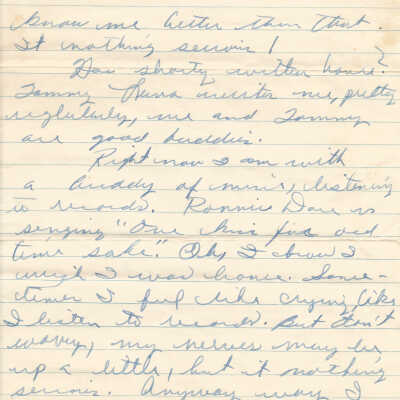 know me better than that.
It nothing serious!
Has shorty written home?
Tommy writes me, pretty
reglularly, me and Tommy
are good buddies.
Right now I am with
a buddy of mine, listening
to records. Ronnie Dove is
singing "One kiss for old
time sake". Oh, I I
wish I was home. Some-
times I feel like crying like
I listen to records. But don't
worry, my nerves may be
up a little, but it nothing
serious. Anyway I